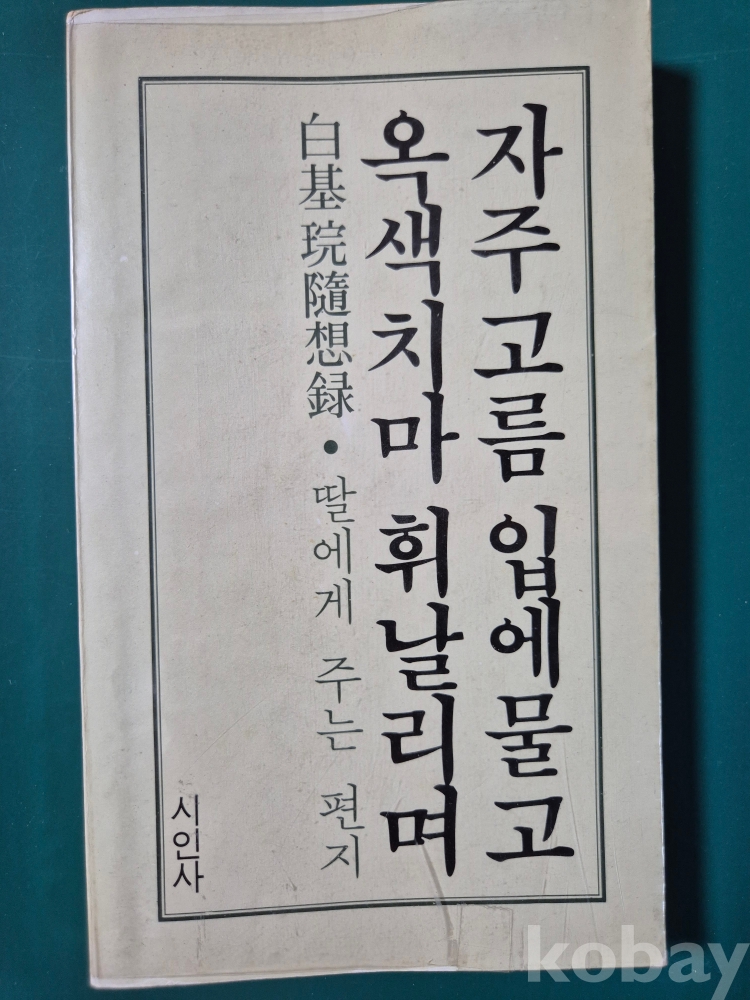 자주고름 입에물고
옥색치마 휘날리며
白基琓隨想録·딸에게 주는 편지
시인사
kobay